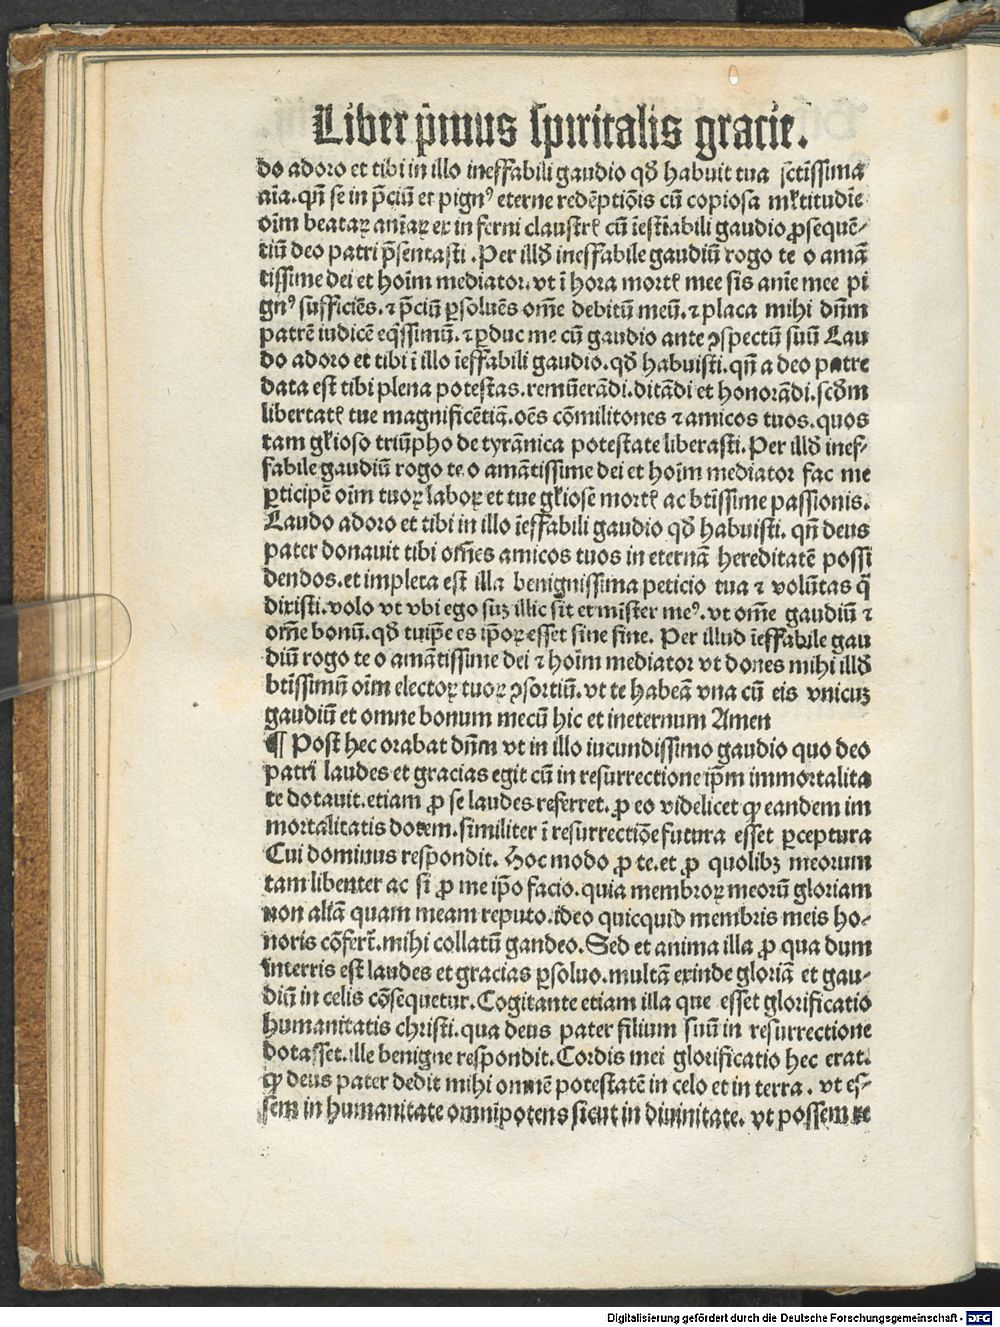 Liber p̄imus spiritalis gracie.
do adoro et tibi in illo ineffabili gaudio qđ habuit tua sctīssima
aīa. qn̄ se in p̄ciū et pignꝰ eterne redēptiōis cū copiosa mł̓titudīe
oīm beataꝝ anīaꝝ ex in ferni claustrꝭ cū īestīabili gaudio ꝓsequē-
tiū deo patri p̄sentasti. Per illđ ineffabile gaudiū rogo te o amā
tissime dei et hoīm mediator. vt ī hora mortꝭ mee sis anīe mee pi
gnꝰ sufficiēs. ⁊ p̄ciū ꝑsoluēs om̄e debitū meū. ⁊ placa mihi dn̄m
patrē iudicē eq̄ssimū. ⁊ ꝑduc me cū gaudio ante ꝯspectū suū Lau
do adoro et tibi ī illo īeffabili gaudio. qđ habuisti. qn̄ a deo patre
data est tibi plena potestas. remūerādi. ditādi et honorādi. scđm
libertatꝭ tue magnificētiā. oēs cōmilitones ⁊ amicos tuos. quos
tam gł̓ioso triūpho de tyrānica potestate liberasti. Per illđ inef-
fabile gaudiū rogo te o amātissime dei et hoīm mediator fac me
ꝑticipē oīm tuoꝝ laboꝝ et tue gł̓iose mortꝭ ac btīssime passionis.
Laudo adoro et tibi in illo īeffabili gaudio qđ habuisti. qn̄ deus
pater donauit tibi om̄es amicos tuos in eternā hereditatē possi
dendos. et impleta est illa benignissima peticio tua ⁊ volūtas q̄
dixisti. volo vt vbi ego suꝫ illic sit et mīster meꝰ. vt om̄e gaudiū ⁊
om̄e bonū. qđ tuip̄e es ip̄oꝝ esset sine fine. Per illud īeffabile gau
diū rogo te o amātissime dei ⁊ hoīm mediator vt dones mihi illđ
btīssimū oīm electoꝝ tuoꝝ ꝯsortiū. vt te habeā vna cū eis vnicuꝫ
gaudiū et omne bonum mecū hic et ineternum Amen
¶ Post hec orabat dn̄m vt in illo iucundissimo gaudio quo deo
patri laudes et gracias egit cū in resurrectione ip̄m immortalita
te dotauit. etiam ꝓ se laudes referret. ꝓ eo videlicet ꝙ eandem im
mortalitatis dotem. similiter ī resurrectiōe futura esset ꝑceptura
Cui dominus respondit. Hoc modo ꝓ te. et ꝓ quolibꝫ meorum
tam libenter ac si ꝓ me ip̄o facio. quia membroꝝ meorū gloriam
non aliā quam meam reputo. ideo quicquid membris meis ho-
noris cōfert̄. mihi collatū gaudeo. Sed et anima illa ꝓ qua dum
interris est laudes et gracias ꝑsoluo. multā exinde gloriā et gau-
diū in celis cōsequetur. Cogitante etiam illa que esset glorificatio
humanitatis christi. qua deus pater filium suū in resurrectione
dotasset. ille benigne respondit. Cordis mei glorificatio hec erat.
ꝙ deus pater dedit mihi omnē potestatē in celo et in terra. vt es-
sem in humanitate omnipotens sicut in diuinitate. vt possem re
Digitalisierung gefördert durch die Deutsche Forschungsgemeinschaft - DFG